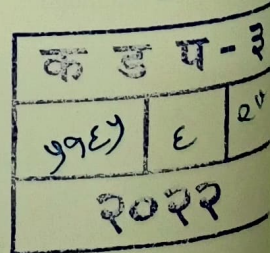 क ड प - ३
५१६५ ६
२०२२